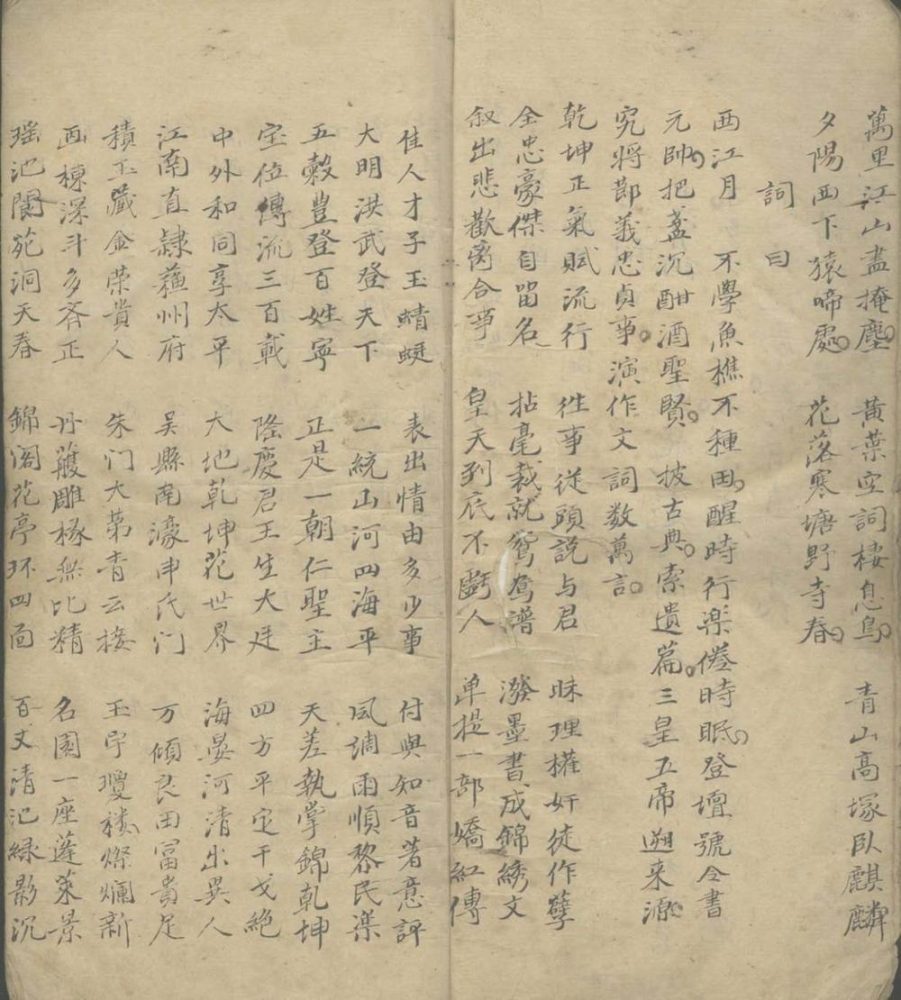 萬里江山盡掩塵。 黃葉空詞棲息鳥。 青山高塚臥麒麟
夕陽西下猿啼處。 花落寒塘野寺春。
詞曰
西江月 不學魚樵不種田。醒時行楽倦時眠。登壇號令書
元帥。把盞沉酣酒聖賢。 披古典。索遺篇。三皇五帝遡来源。
究將節義忠貞事。演作文詞数萬言。
乾坤正氣賦流行 徃事従頭説与君 昧理權奸徒作孽
全忠豪傑自留名 拈毫裁就鴛鴦譜 潑墨書成錦綉文
叙出悲歡离合事 皇天到底不虧人 单提一部嬌紅傳
佳人才子玉蜻蜓 表出情由多少事 付與知音著意評
大明洪武登天下 一統山河四海平 風調雨順黎民楽
五穀豊登百姓寧 正是一朝仁聖主 天差執掌錦乾坤
宝位傳流三百載 隆慶君王生大廷 四方平定干戈絶
中外和同享太平 大地乾坤花世界 海晏河清出異人
江南直隷蘓州府 吳縣南濠申氏门 万傾良田富貴足
積玉藏金荣貴人 朱门大苐青云接 玉宇瓊楼燦爛新
画棟深斗多斉正 丹雘雕椽無比精 名園一座蓬萊景
瑶池閬苑洞天春 錦阁花亭环四面 百丈清池緑影沉